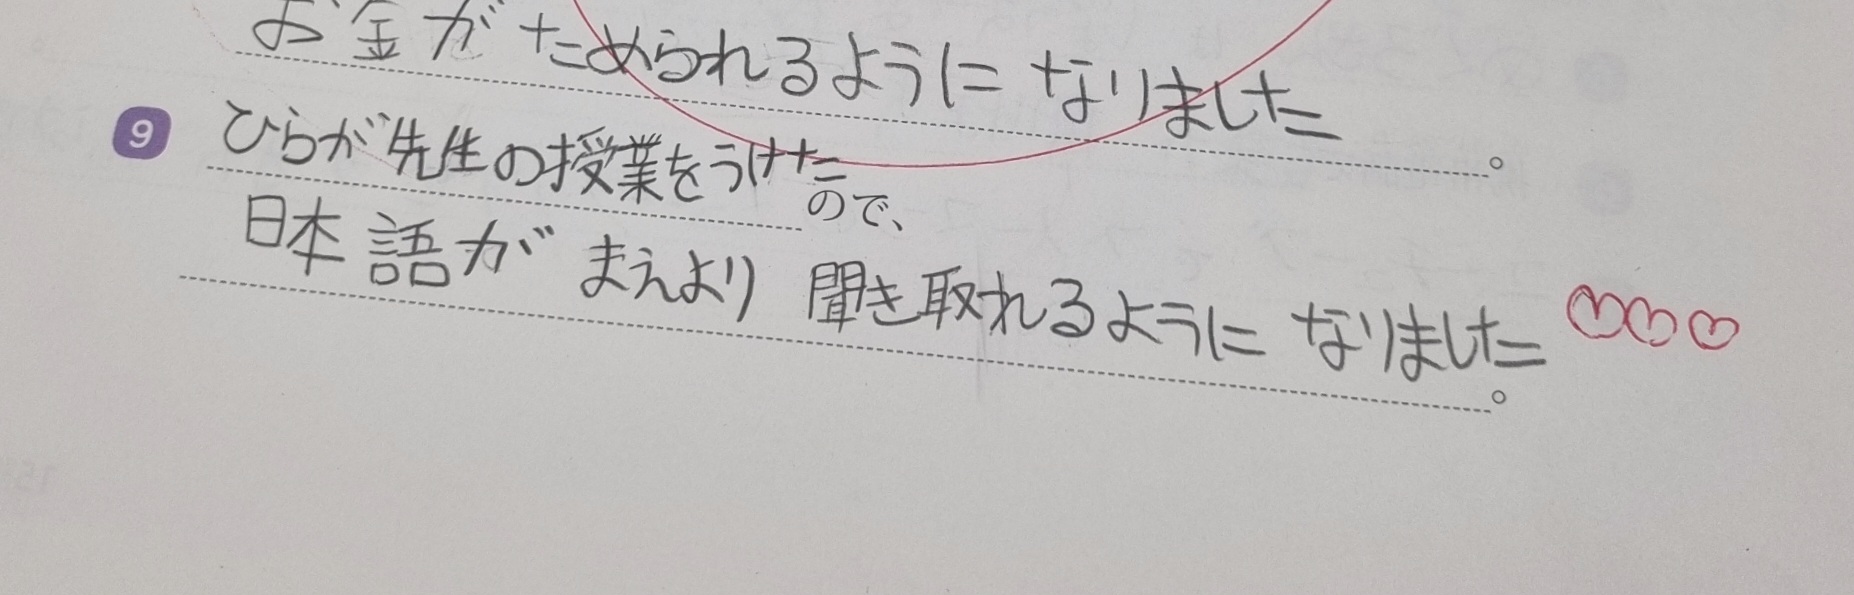 お金がためられるようになりました。
9 ひらが先生の授業をうけた
ので、
日本語がまえより聞き取れるようになりました。